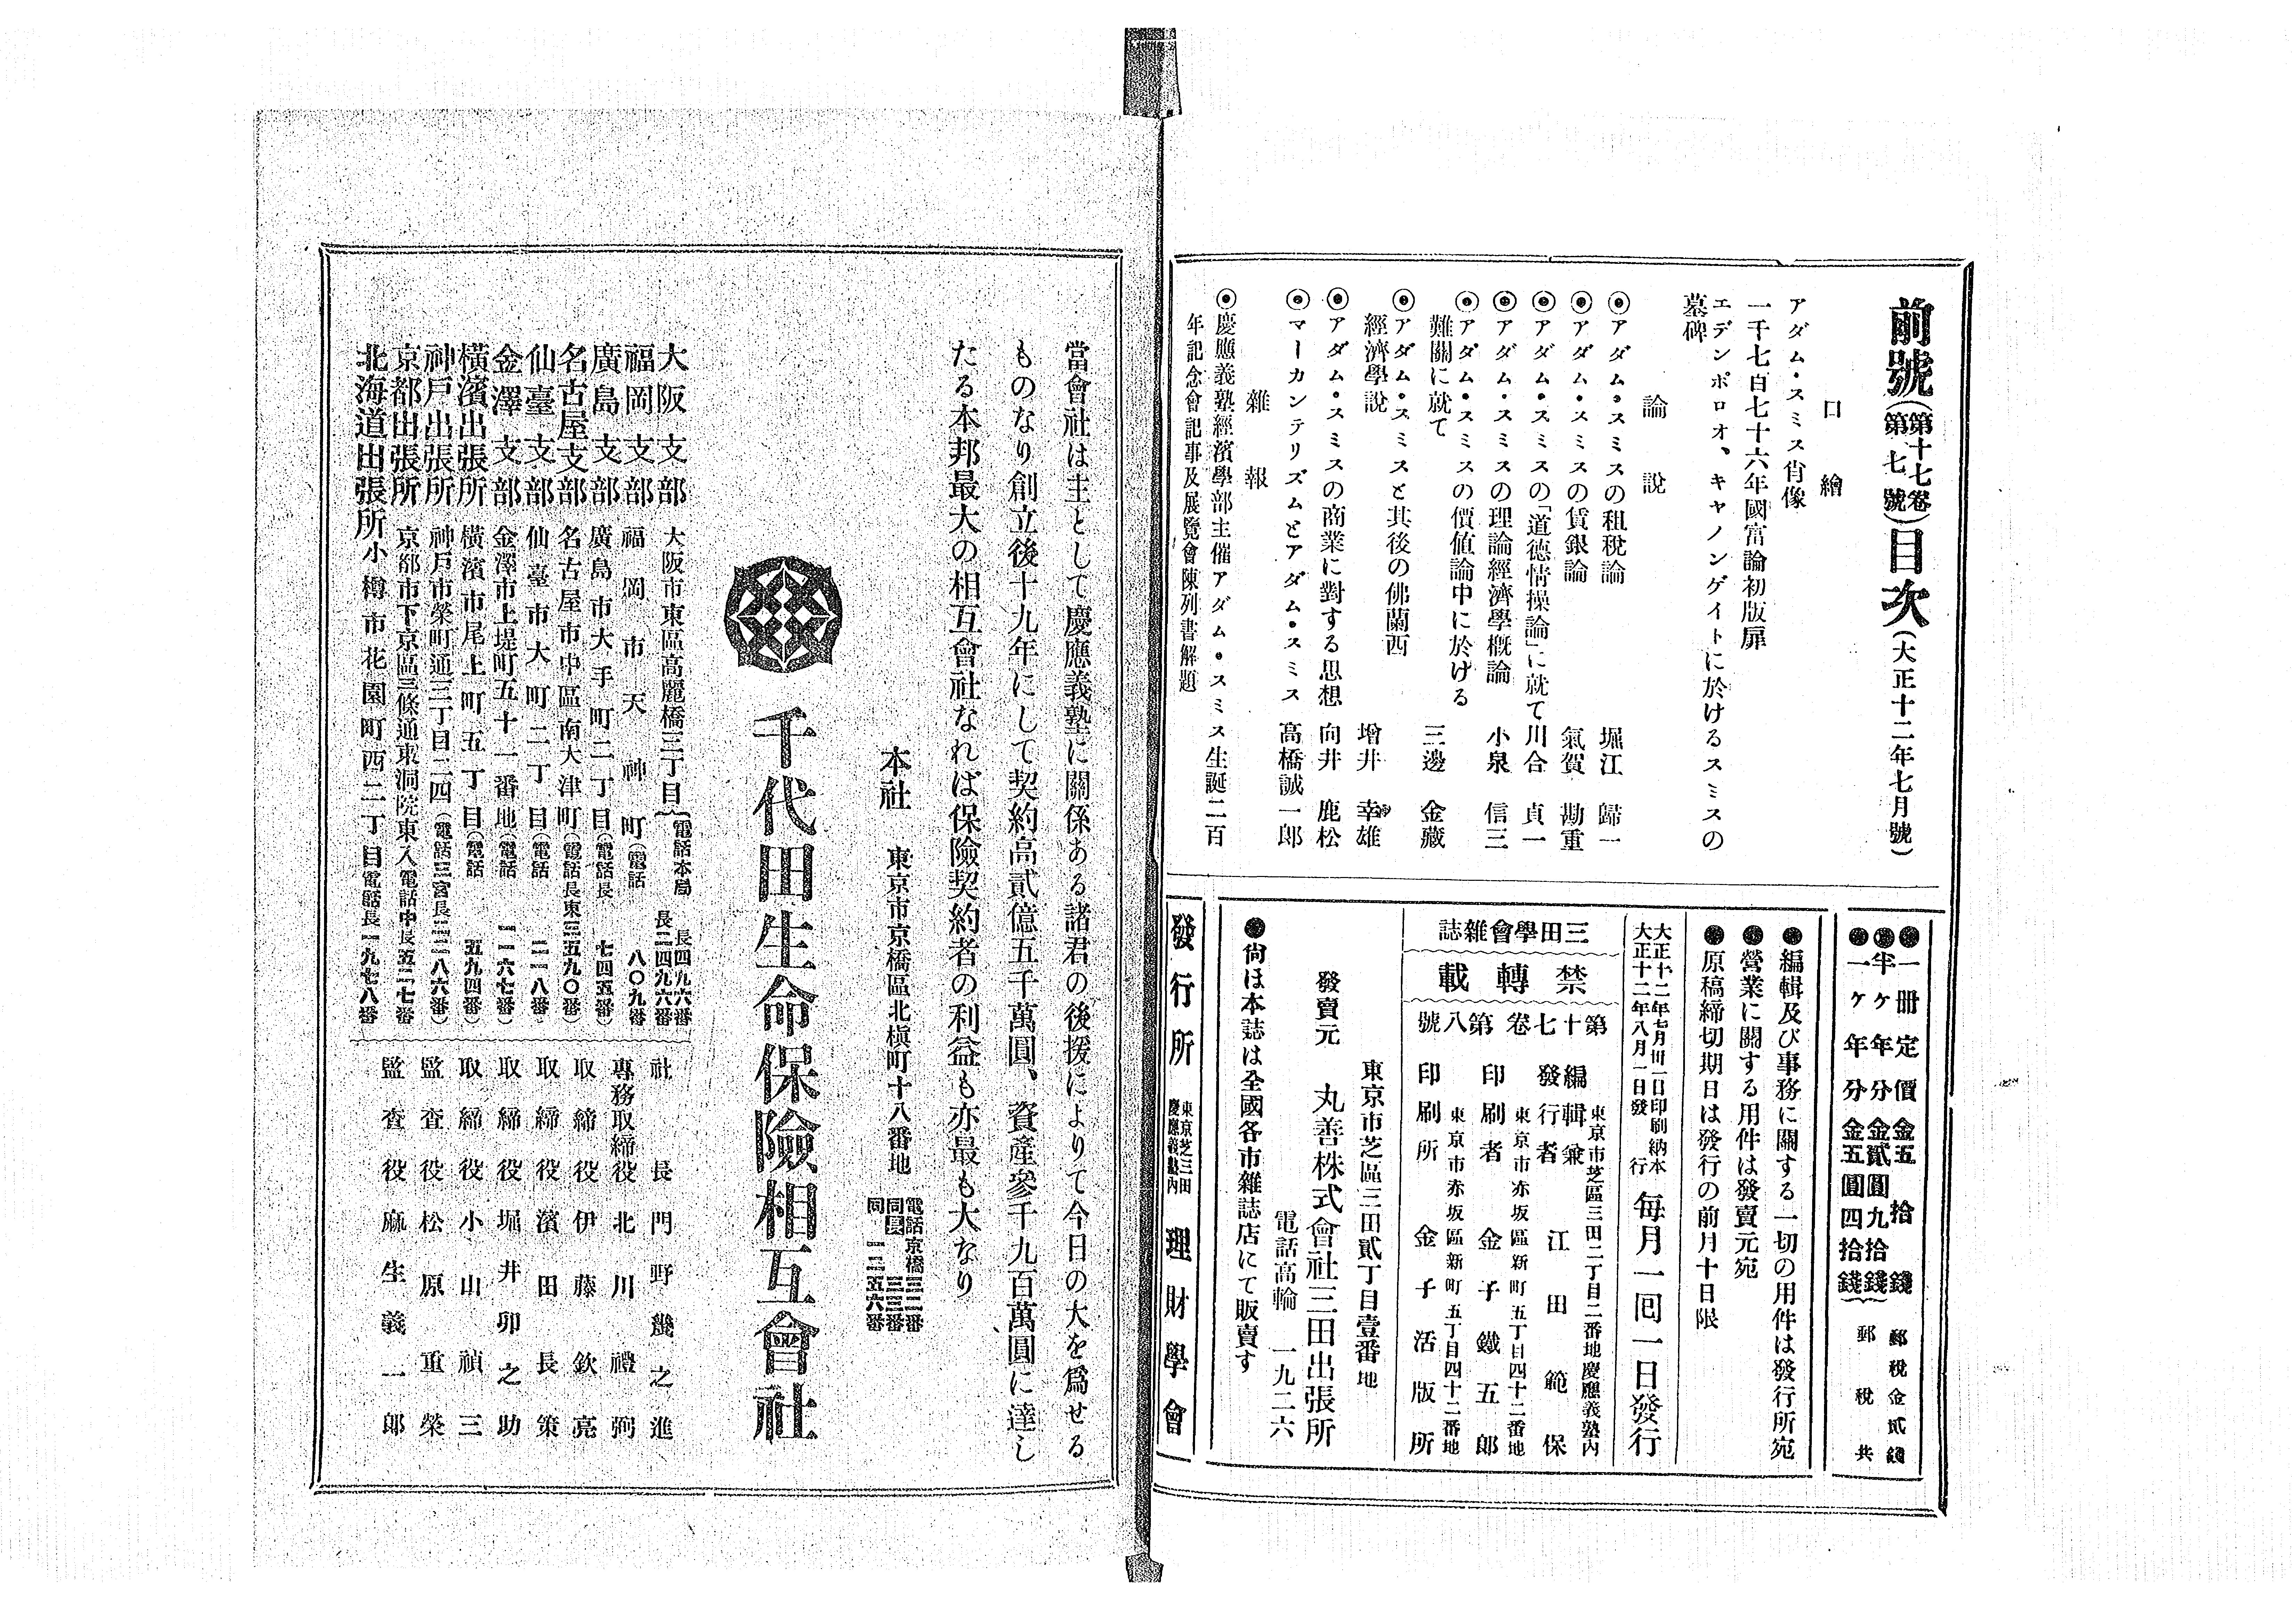 前號(第十七卷第七號)目次(大正十二年七月號)
口繪
アダム・スミス肖像
一千七百七十六年國富論初版扉
エデンボロオ、キャノンゲイトに於けるスミスの
墓碑
論說
◉アダム・スミスの租稅論 堀江歸一
◉アダム・スミスの賃銀論 氣賀勘重
◉アダム・スミスの「道德情操論」に就て 川合貞一
◉アダム・スミスの理論經濟學槪論 小泉信三
◉アダム・スミスの價値論中に於ける
難關に就て 三邊金藏
◉アダム・スミスと其後の佛蘭西
經濟學說 增井幸雄
◉アダム・スミスの商業に對する思想 向井鹿松
◉マーカンテリズムとアダム・スミス 高橋誠一郎
雜報
◉慶應義塾經濟學部主催アダム・スミス生誕二百
年記念會記事及展覽會陳列書解題
●一册定價金五拾錢 郵稅金貳錢
●半ケ年分金貳圓九拾錢
●一ケ年分金五圓四拾錢 郵稅共
●編輯及び事務に關する一切の用件は發行所宛
●營業に關する用件は發賣元宛
●原稿締切期日は發行の前月十日限
大正十二年七月卅一日印刷納本
大正十二年八月一日發行
每月一囘一日發行
三田學會雜誌
禁轉載
第十七卷第八號
東京市芝區三田二丁目二番地慶應義塾內
編輯兼發行者 江田範保
東京市赤坂區新町五丁目四十二番地
印刷者 金子鐵五郎
東京市赤坂區新町五丁目四十二番地
印刷所 金子活版所
東京市芝區三田貳丁目壹番地
發賣元 丸善株式會社三田出張所
電話高輪 一九二六
●尙ほ本誌は全國各市雜誌店にて販賣す
發行所 東京芝三田慶應義塾內 理財學會
當會社は主として慶應義塾に關係ある諸君の後援によりて今日の大を爲せる
ものなり創立後十九年にして契約高貳億五千萬圓、資產參千九百萬圓に達し
たる本邦最大の相互會社なれば保險契約者の利益も亦最も大なり
本社 東京市京橋區北槇町十八番地
電話京橋 三二二番
同長 三三三番
同 一二五六番
千代田生命保險相互會社
大阪支部 大阪市東區高麗橋三丁目(電話本局 長四九六番 長二四九六番
福岡支部 福岡市天神町(電話 八〇九番
廣島支部 廣島市大手町二丁目(電話長 七四五番
名古屋支部 名古屋市中區南大津町(電話長東三五九〇番)
仙臺支部 仙臺市大町二丁目(電話 二一八番
金澤支部 金澤市上堤町五十一番地(電話 二一六七番)
橫濱出張所 橫濱市尾上町五丁目(電話 五九四番)
神戶出張所 神戶市榮町通三丁目二四(電話三宮長二二八六番)
京都出張所 京都市下京區三條通東洞院東入電話中長五二七番
北海道出張所 小樽市花園町西二丁目電話長一九七八番
社長 門野幾之進
專務取締役 北川禮弼
取締役 伊藤欽亮
取締役 濱田長策
取締役 堀井卯之助
取締役 小山禎三
監査役 松原重榮
監査役 麻生義一郎